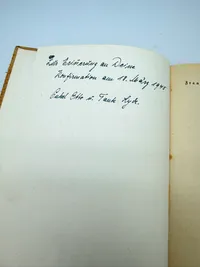 Zur Erinnerung an Deine
Konfirmation am 18. März 19
Onkel Otto u. Tante